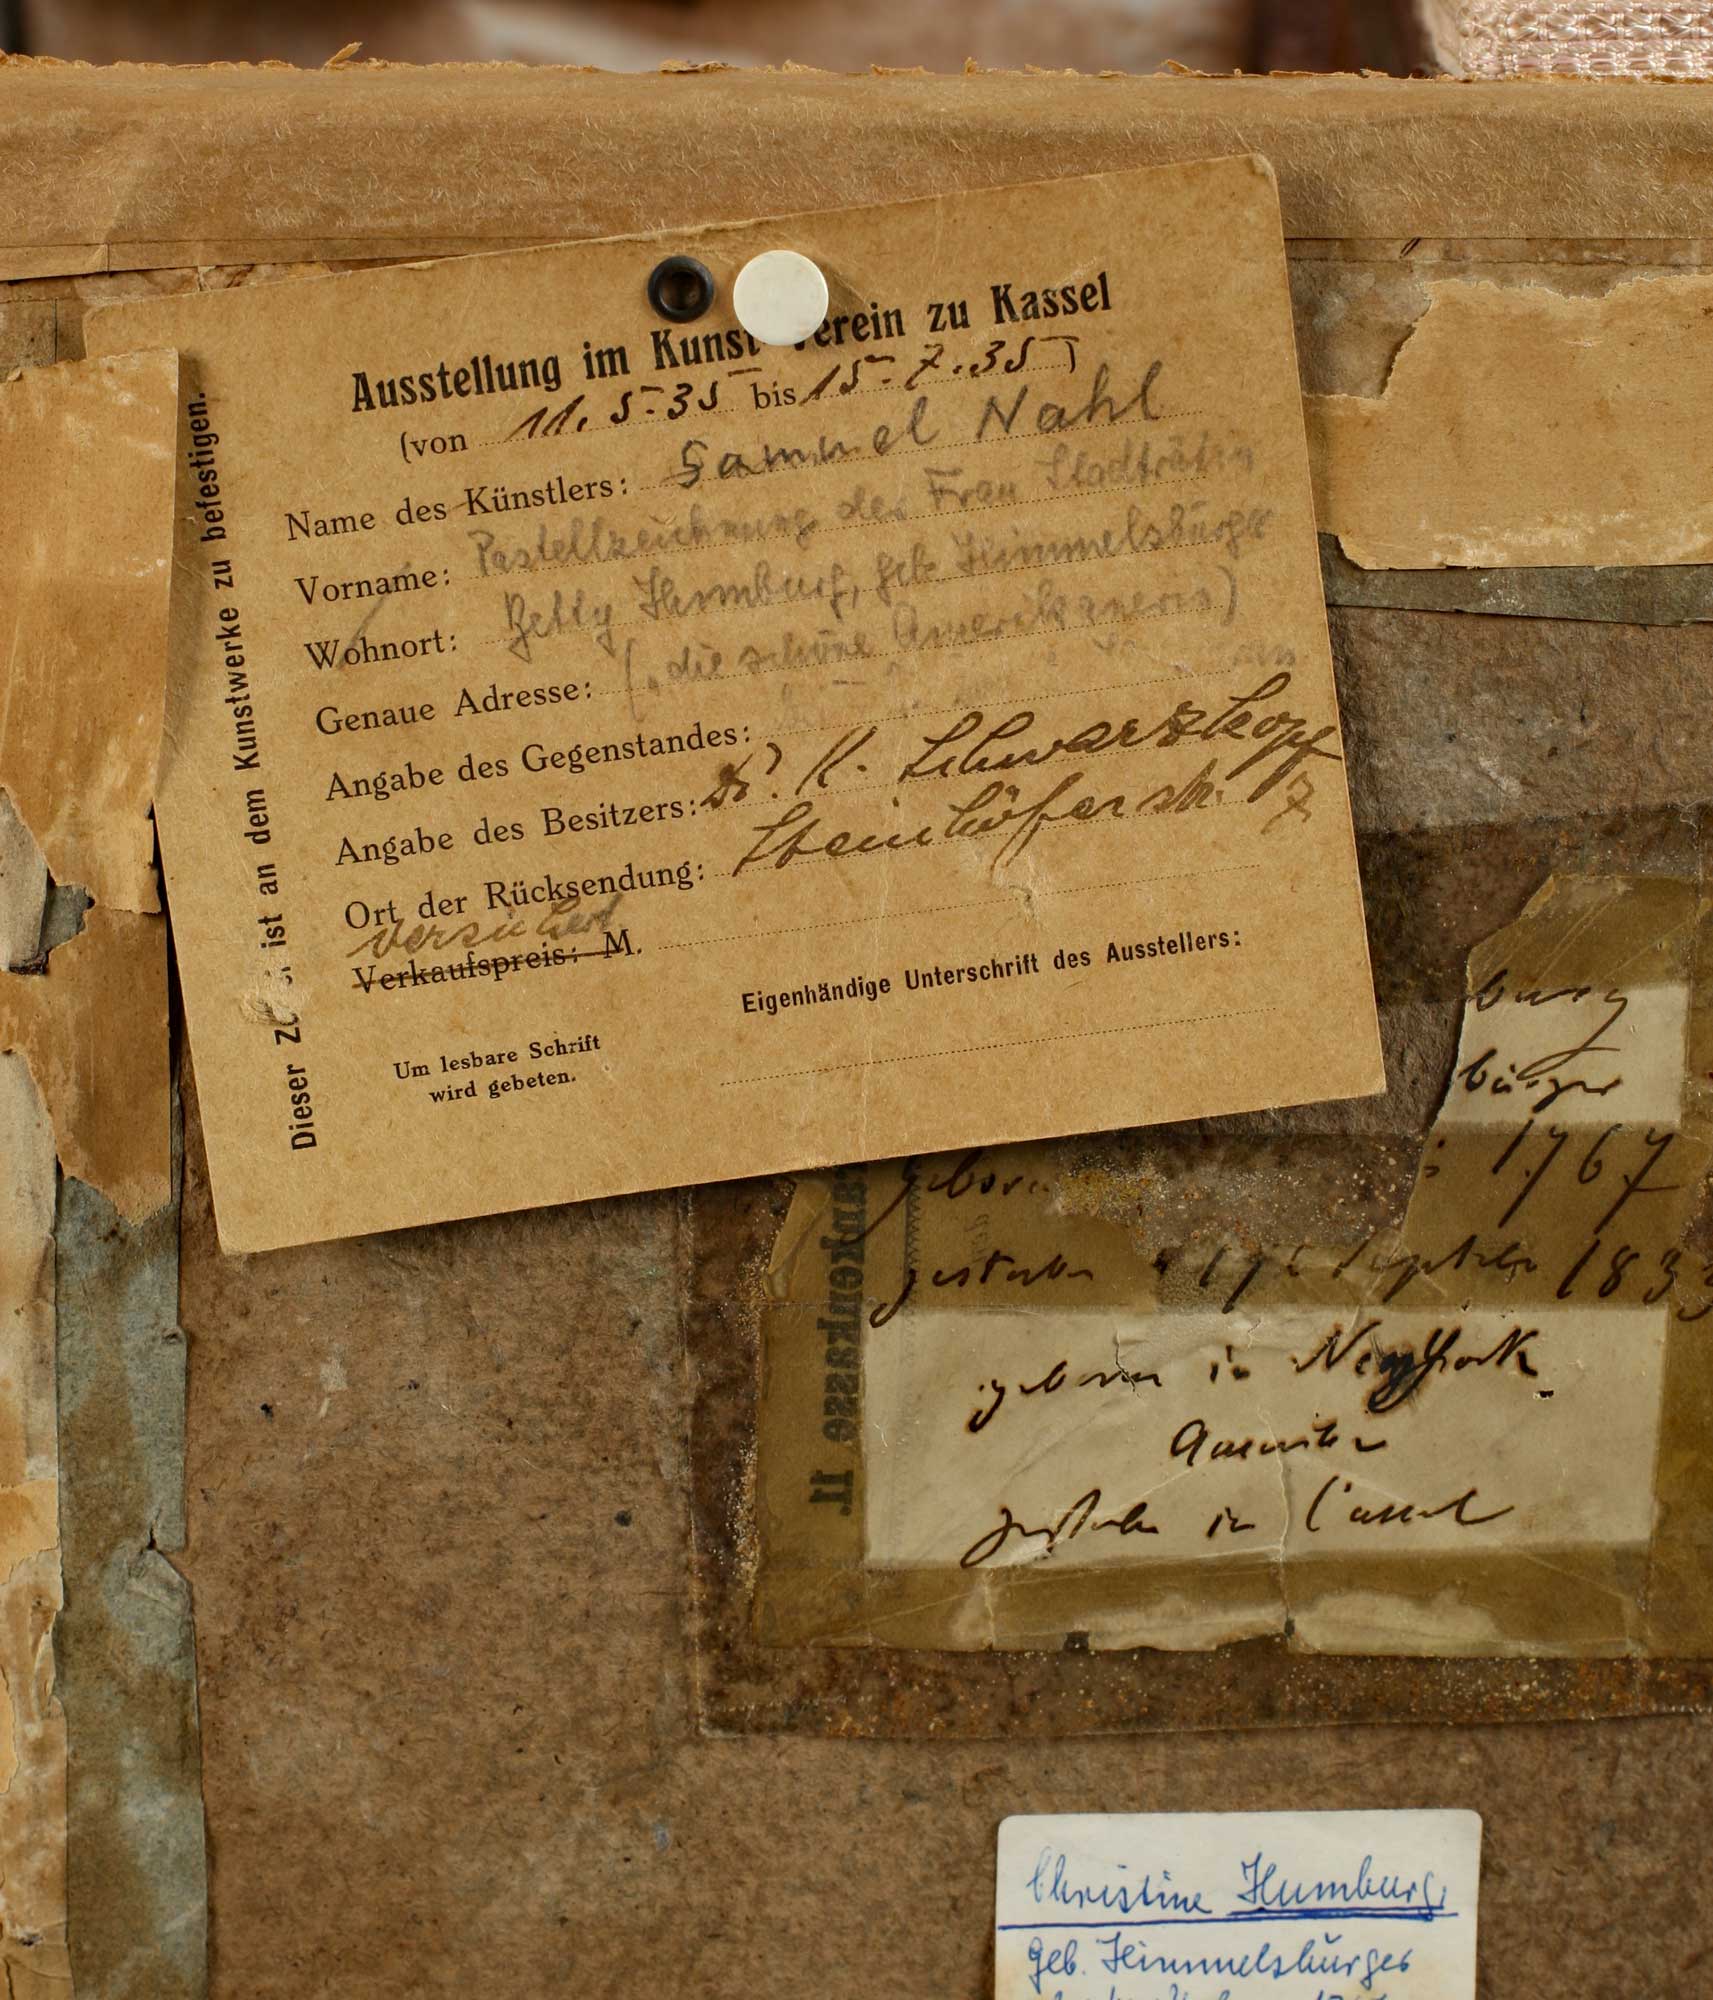 Ausstellung im Kunst verein zu Kassel
(von 11. 5. 35 bis 15. 7. 35)
Name des Künstlers: Samuel Nahl
Vorname: Pastellzeichnung der Frau Stadträtin
Wohnort: Betty Humburg, geb. Himmelsbürger
Genaue Adresse: („die schöne Amerikanerin)
Angabe des Gegenstandes:
Angabe des Besitzers: Dr. K. Schwarzkopf
Ort der Rücksendung: Steinhöferstr. 7
versichert
Verkaufspreis: M.
Eigenhändige Unterschrift des Ausstellers:
Um lesbare Schrift
wird gebeten.
Dieser ist an dem Kunstwerke zu befestigen.
burg
bürger
geboren 1767
gestorben 17t September 183
geboren in NewYork
Amerika
gestorben in Cassel
ankenkasse II.
Christine Humburg,
geb. Himmelsbürger